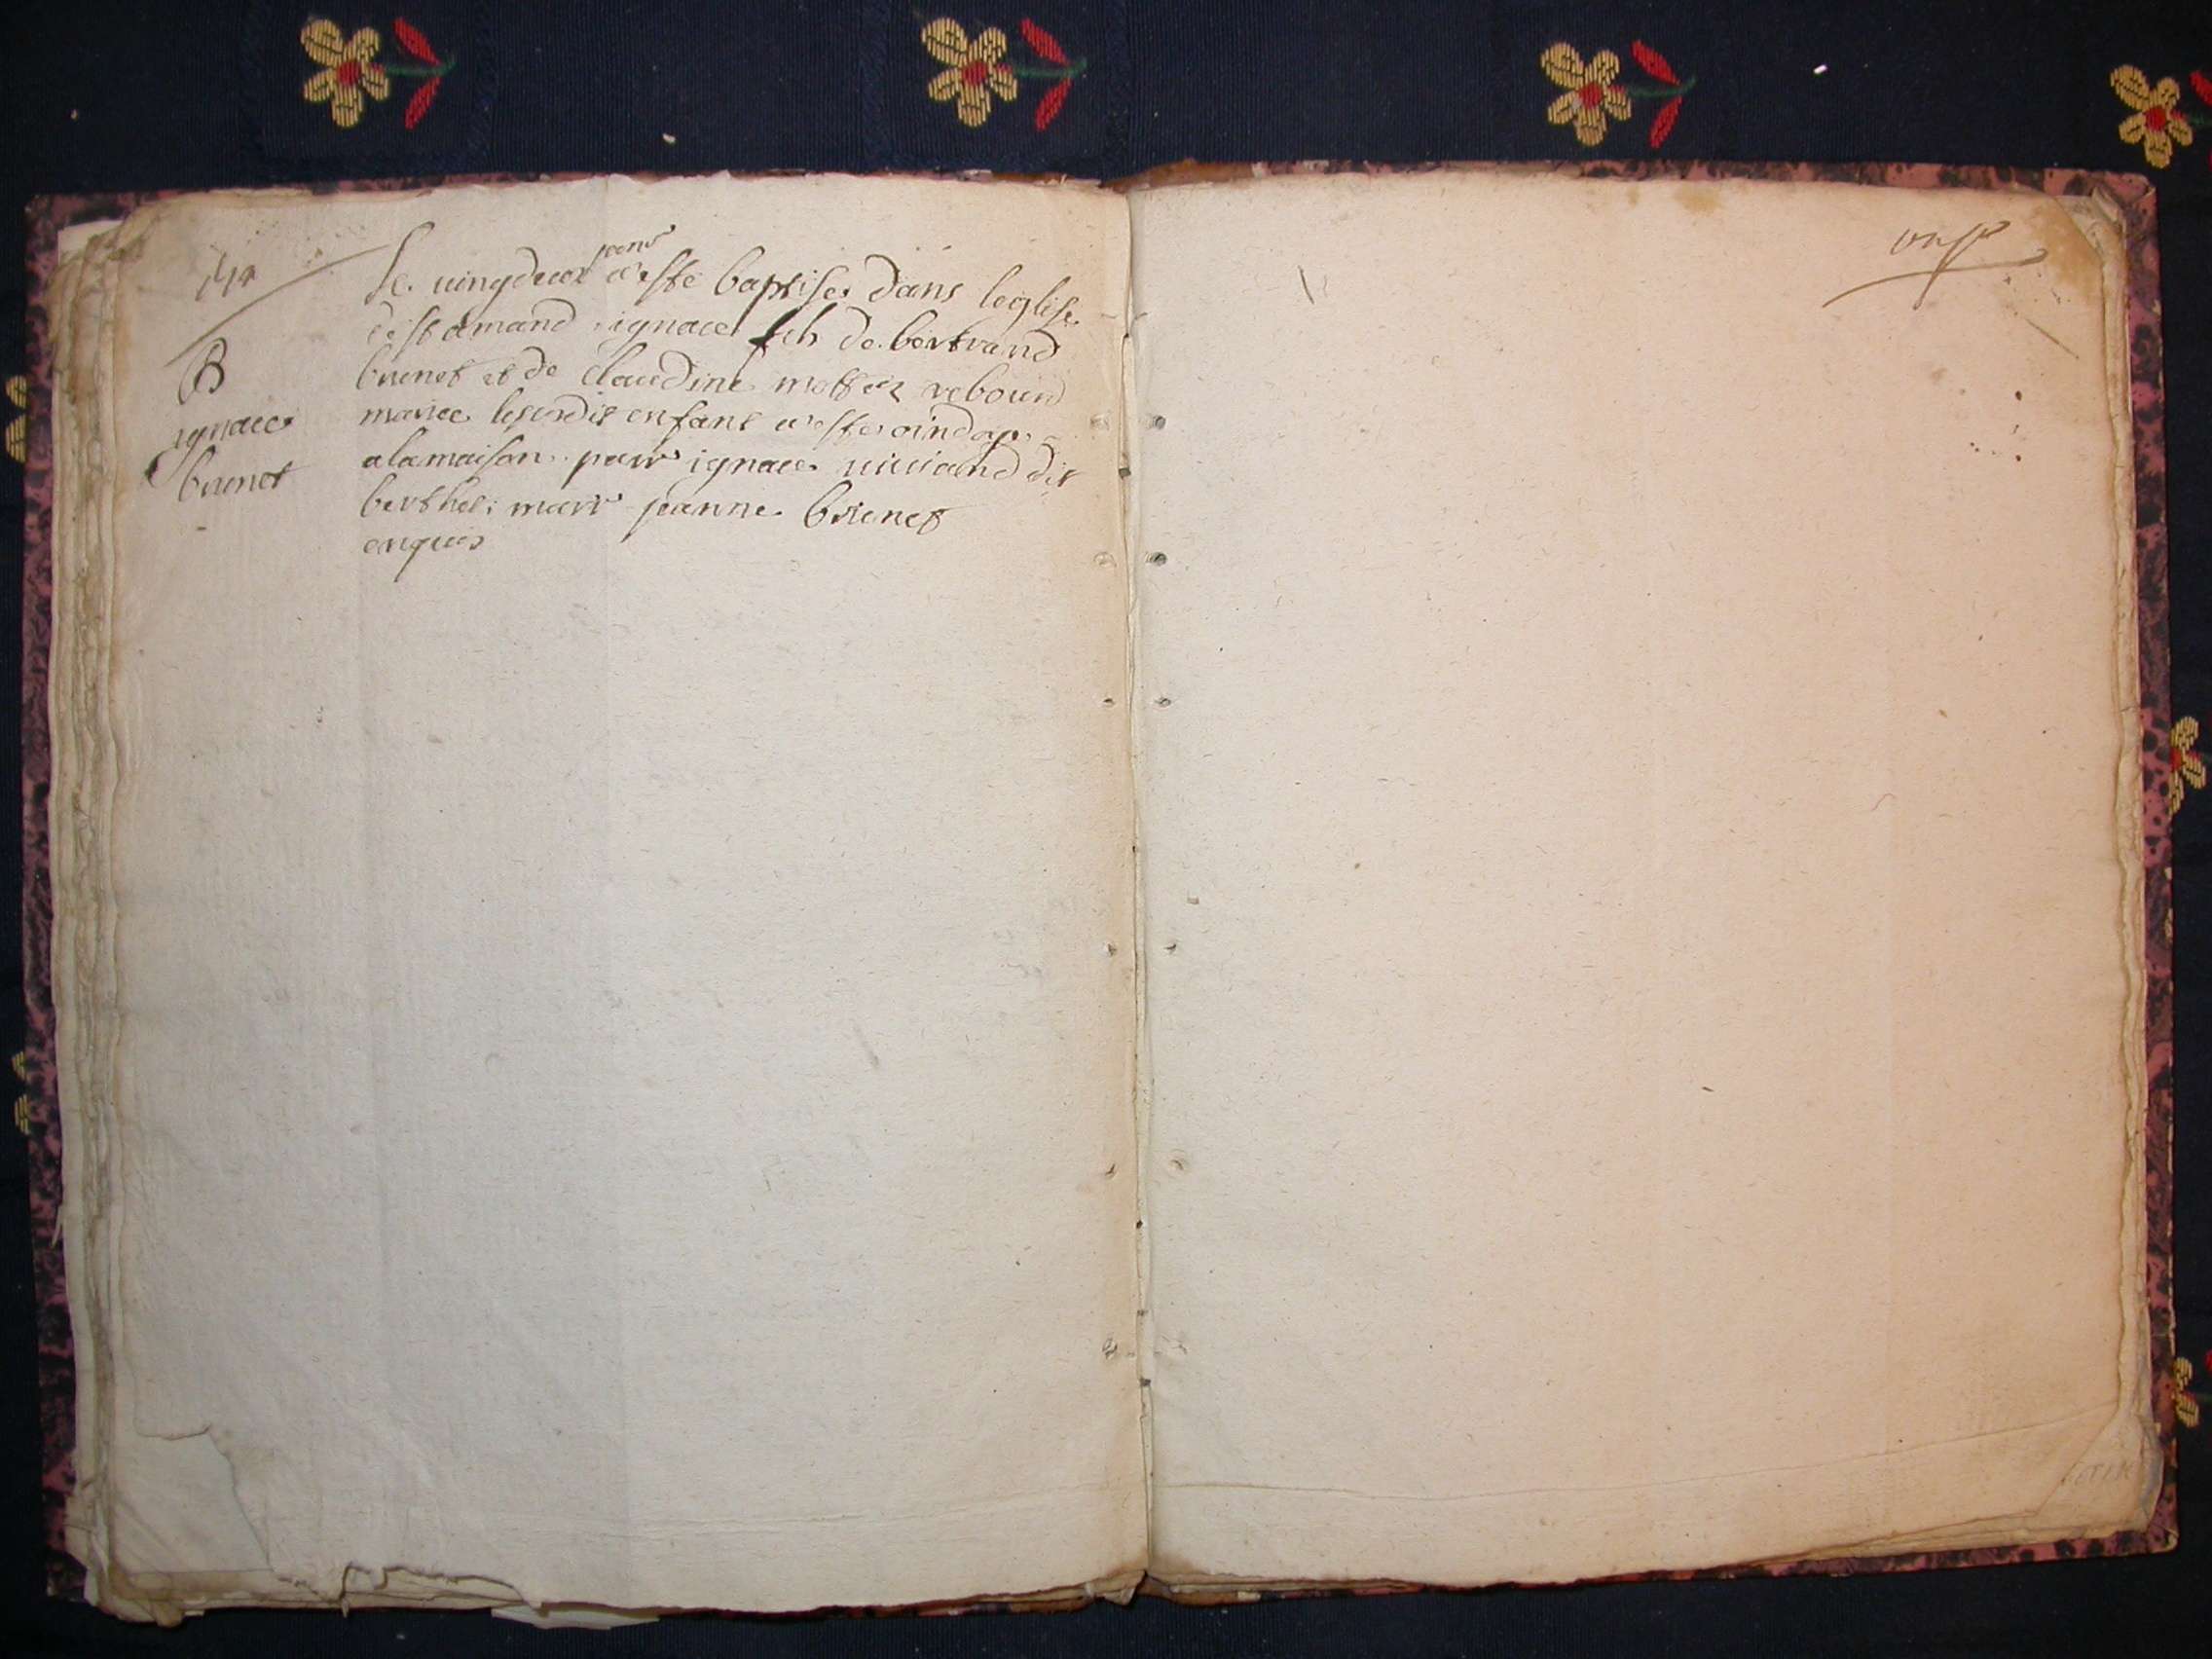 B
ignace
brunet
Le vingdeux janv a esté baptisé dans leglise
de st amand ignace fch de bertrand
brunet et de claudine mottet
mariee lesurdit enfant a esté oindoye
alamaison parr ignace viviand dit
berthet marr jeanne brunet
enquis